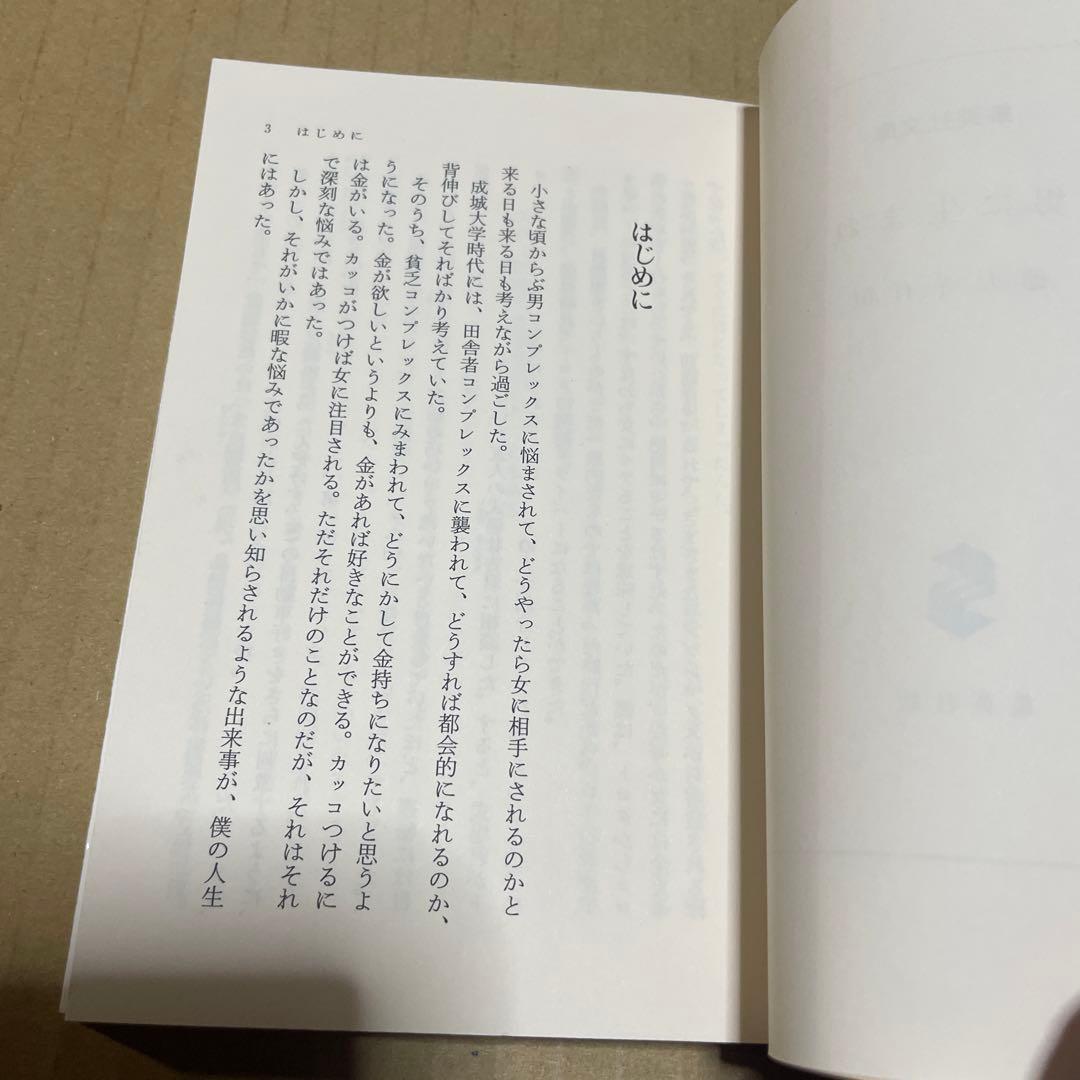 3 はじめに
はじめに
小さな頃からぶ男コンプレックスに悩まされて、どうやったら女に相手にされるのかと
来る日も来る日も考えながら過ごした。
成城大学時代には、田舎者コンプレックスに襲われて、どうすれば都会的になれるのか、
背伸びしてそればかり考えていた。
そのうち、貧乏コンプレックスにみまわれて、どうにかして金持ちになりたいと思うよ
うになった。金が欲しいというよりも、金があれば好きなことができる。カッコつけるに
は金がいる。カッコがつけば女に注目される。ただそれだけのことなのだが、それはそれ
で深刻な悩みではあった。
しかし、それがいかに暇な悩みであったかを思い知らされるような出来事が、僕の人生
にはあった。